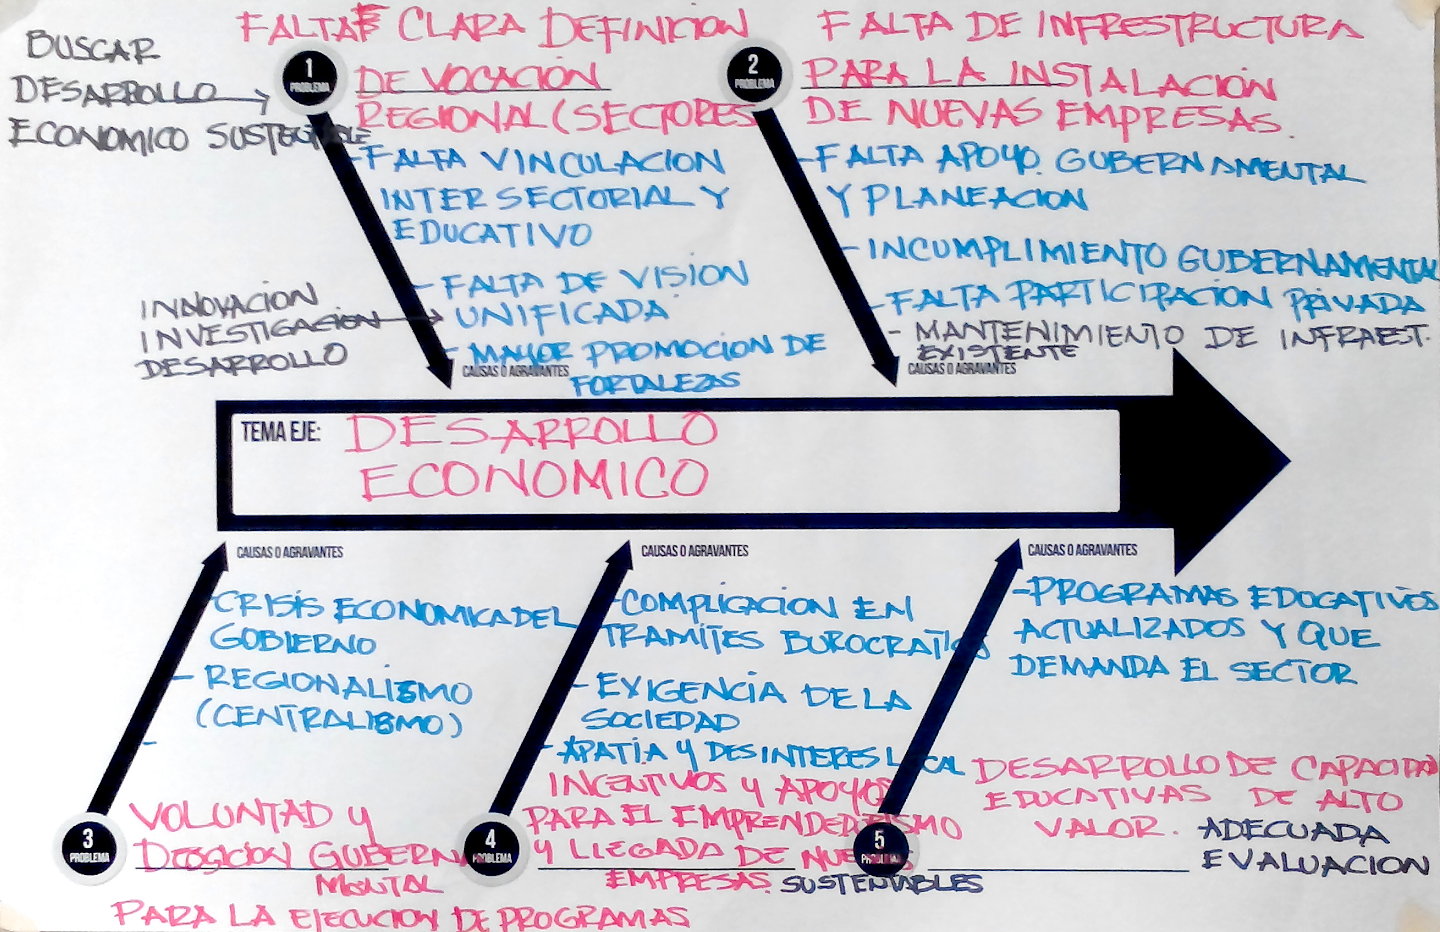 BUSCAR
DESARROLLO
ECONOMICO SUSTENTABLE
FALTA CLARA DEFINICION
1
PROBLEMA
DE VOCACIÓN
REGIONAL (SECTORES
-FALTA VINCULACION
INTERSECTORIAL Y
EDUCATIVO
- FALTA DE VISION
UNIFICADA
- MAYOR PROMOCION DE
FORTALEZAS
INNOVACION
INVESTIGACION
DESARROLLO
CAUSAS O AGRAVANTES
FALTA DE INFRESTRUCTURA
2
PROBLEMA
PARA LA INSTALACIÓN
DE NUEVAS EMPRESAS.
-FALTA APOYO GUBERNAMENTAL
Y PLANEACION
-INCUMPLIMIENTO GUBERNAMENTAL
-FALTA PARTICIPACION PRIVADA
- MANTENIMIENTO DE INFRAEST.
EXISTENTE
CAUSAS O AGRAVANTES
TEMA EJE: DESARROLLO
ECONOMICO
CAUSAS O AGRAVANTES
-CRISIS ECONOMICA DEL
GOBIERNO
- REGIONALISMO
(CENTRALISMO)
-
3
PROBLEMA
VOLUNTAD Y
DECISION GUBERNA
MENTAL
PARA LA EJECUCION DE PROGRAMAS
CAUSAS O AGRAVANTES
-COMPLICACION EN
TRAMITES BUROCRATICOS
-EXIGENCIA DE LA
SOCIEDAD
-APATIA Y DESINTERES LOCAL
4
PROBLEMA
INCENTIVOS Y APOYOS
PARA EL EMPRENDEDURISMO
Y LLEGADA DE NUEVAS
EMPRESAS SUSTENTABLES
CAUSAS O AGRAVANTES
-PROGRAMAS EDUCATIVOS
ACTUALIZADOS Y QUE
DEMANDA EL SECTOR
5
PROBLEMA
DESARROLLO DE CAPACIDAD
EDUCATIVAS DE ALTO
VALOR. ADECUADA
EVALUACION